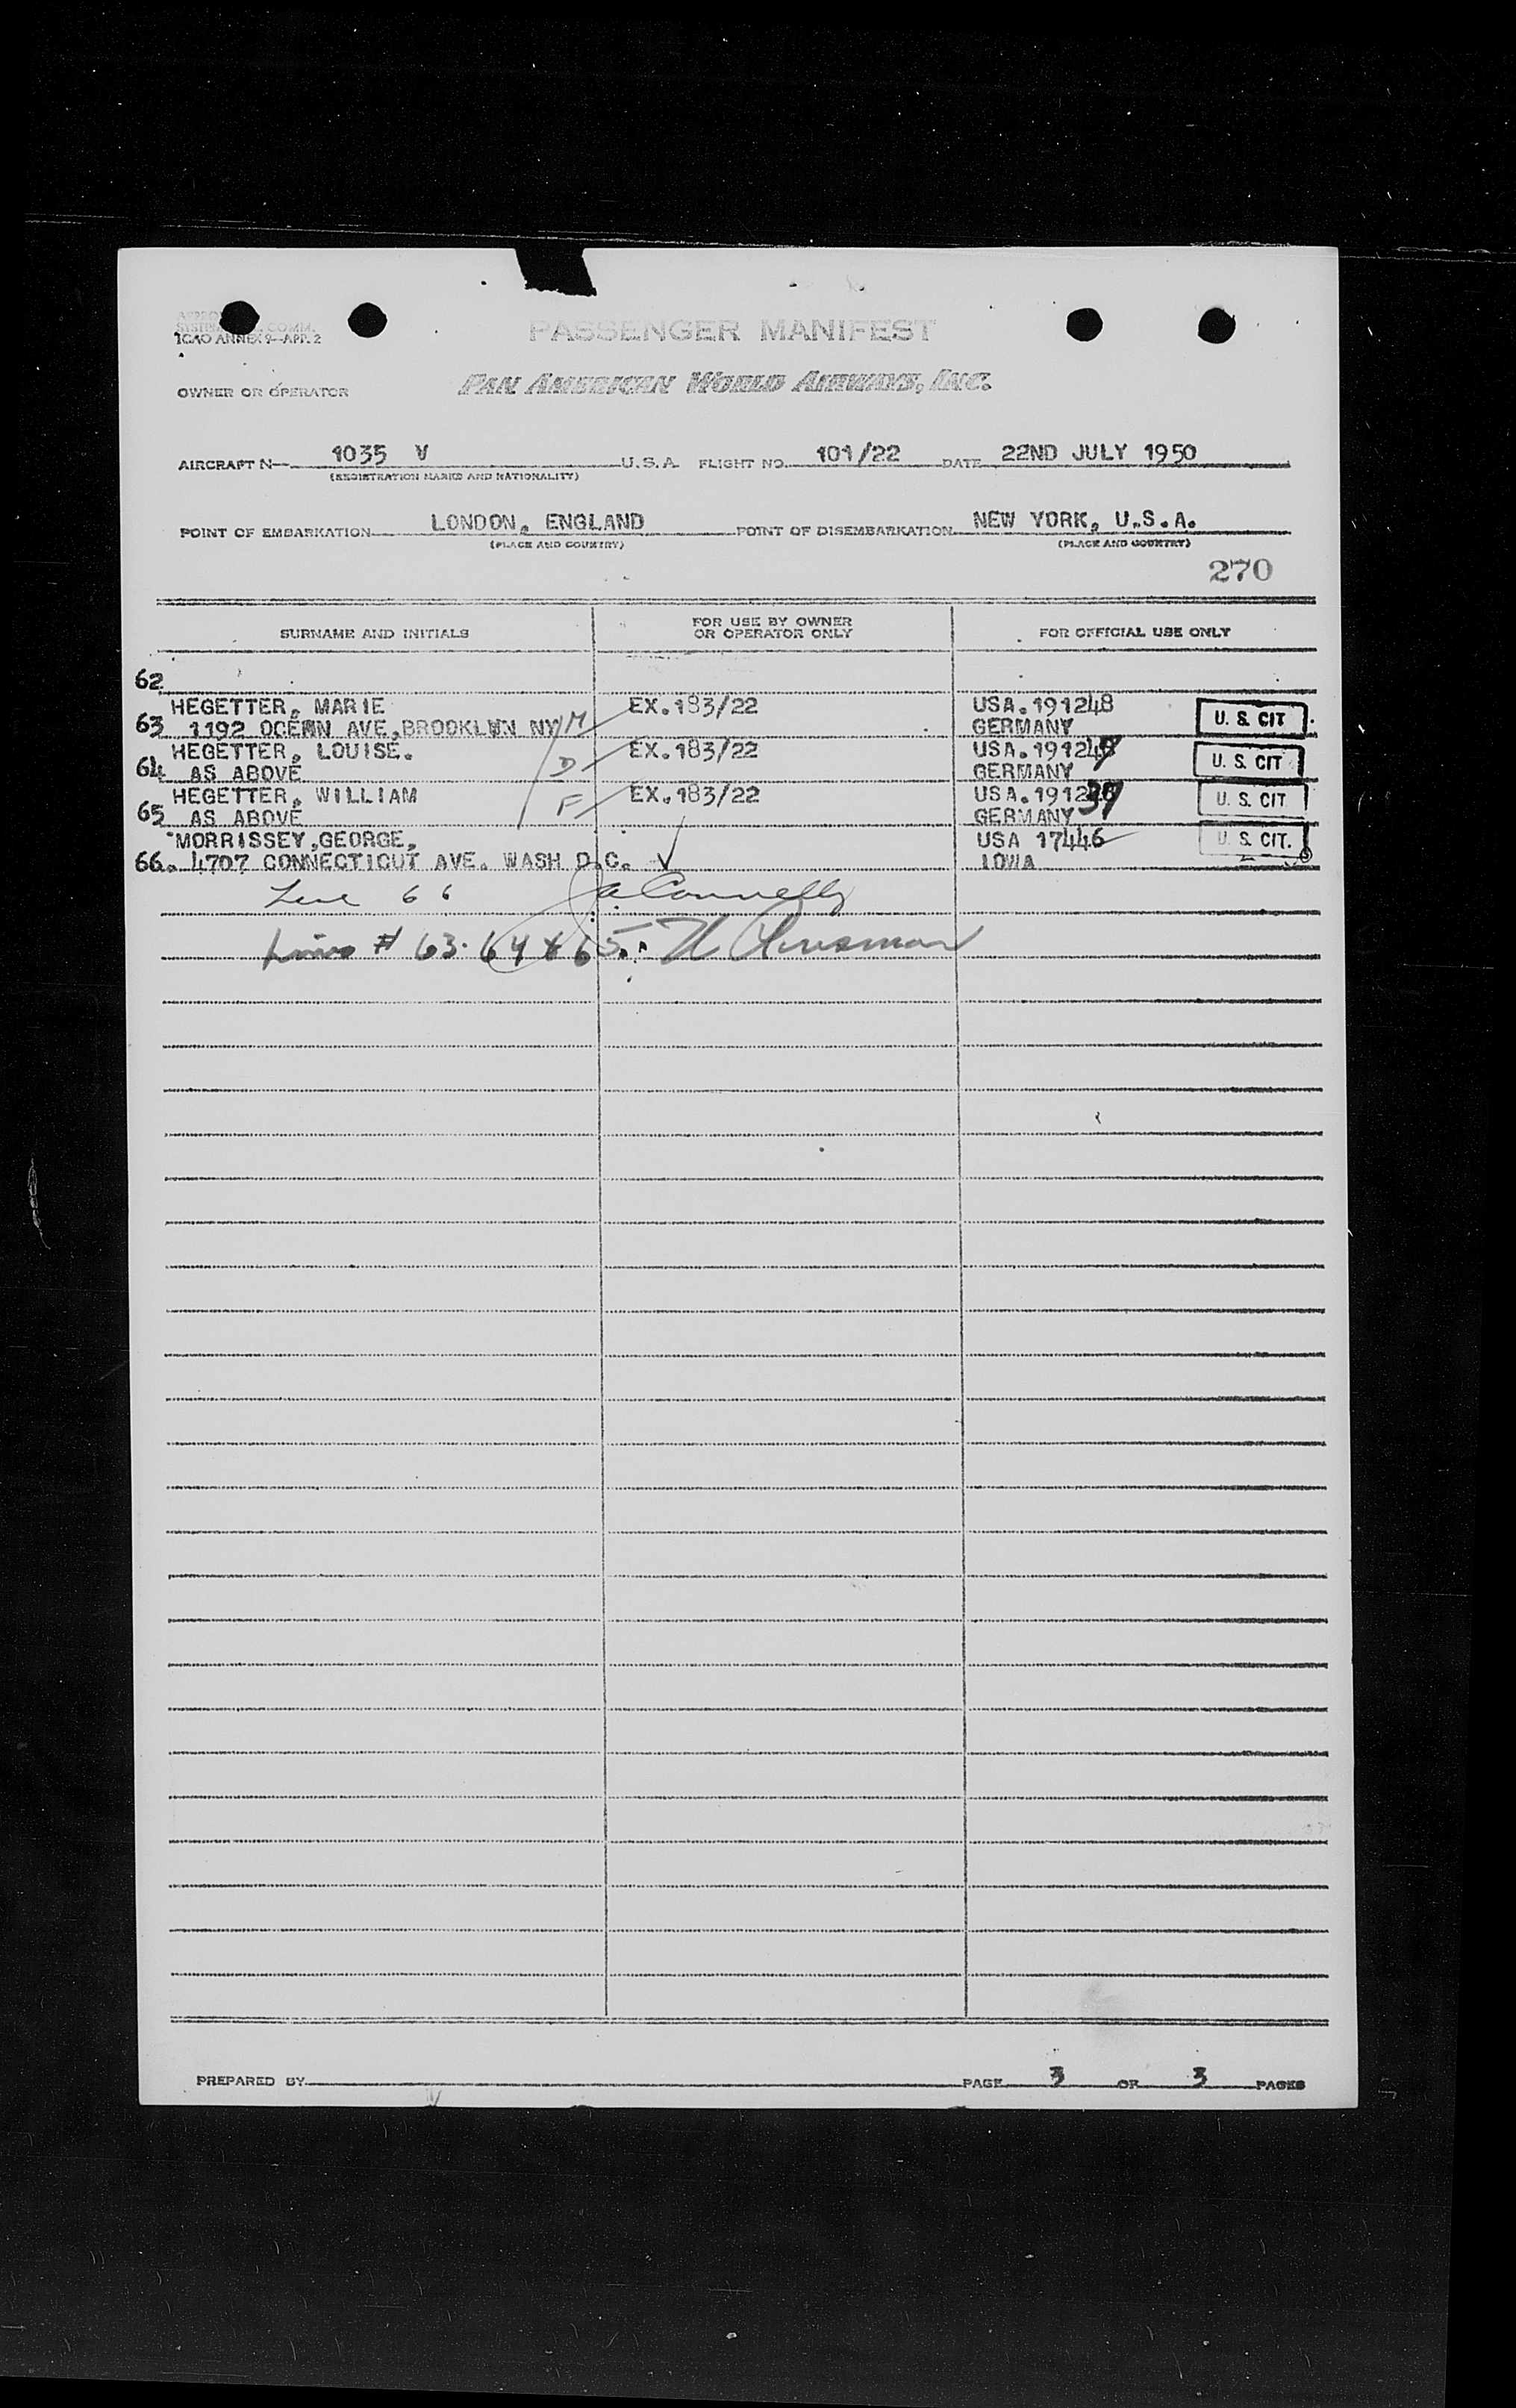 ICAO ANNEX 9-APP. 2
PASSENGER MANIFEST
OWNER OR OPERATOR PAN AMERICAN WORLD AIRWAYS, INC.
AIRCRAFT N— 1035 V U.S.A. FLIGHT NO. 101/22 DATE 22ND JULY 1950
(REGISTRATION MARKS AND NATIONALITY)
POINT OF EMBARKATION LONDON, ENGLAND POINT OF DISEMBARKATION NEW YORK, U.S.A.
(PLACE AND COUNTRY) (PLACE AND COUNTRY)
270
SURNAME AND INITIALS FOR USE BY OWNER OR OPERATOR ONLY FOR OFFICIAL USE ONLY
62
HEGETTER, MARIE EX.183/22 USA.191248
63 1192 OCEAN AVE,BROOKLYN NY M GERMANY U. S. CIT
HEGETTER, LOUISE. EX.183/22
64 AS ABOVE D GERMANY U. S. CIT
HEGETTER, WILLIAM EX.183/22
65 AS ABOVE F GERMANY U. S. CIT
MORRISSEY,GEORGE, USA 17446
66. 4707 CONNECTICUT AVE. WASH D.C. IOWA U. S. CIT.
Line 66 Connelly
Lines # 63. 64 & 65.
PREPARED BY PAGE 3 OF 3 PAGES